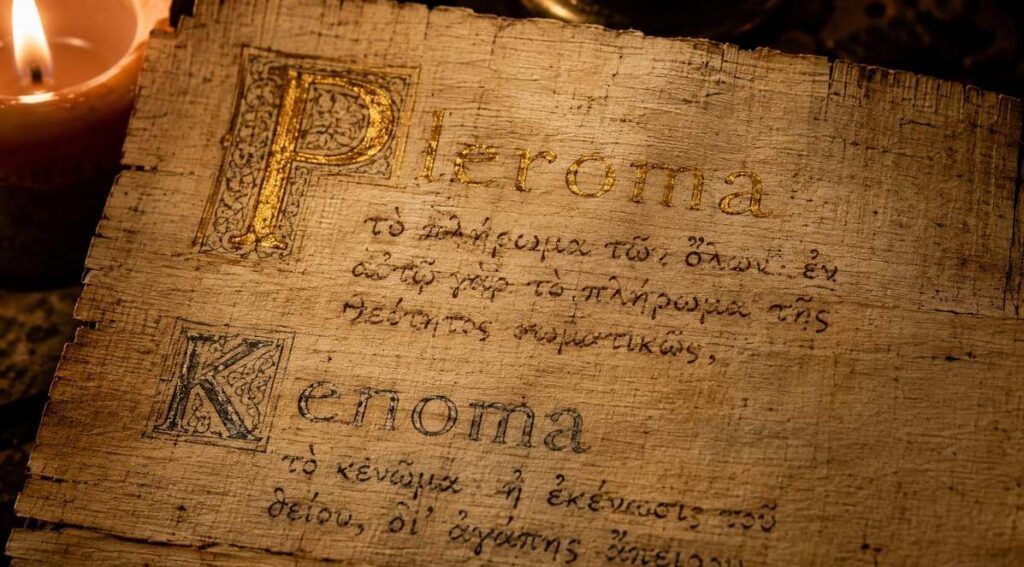 Pleroma
τὸ πλήρωμα τῶν ὅλων· ἐν
αὐτῷ γὰρ τὸ πλήρωμα τῆς
θεότητος σωματικῶς,
Kenoma
τὸ κένωμα ἡ ἐκένωσις τοῦ
θείου, δι' ἀγάπης ἄπειρου